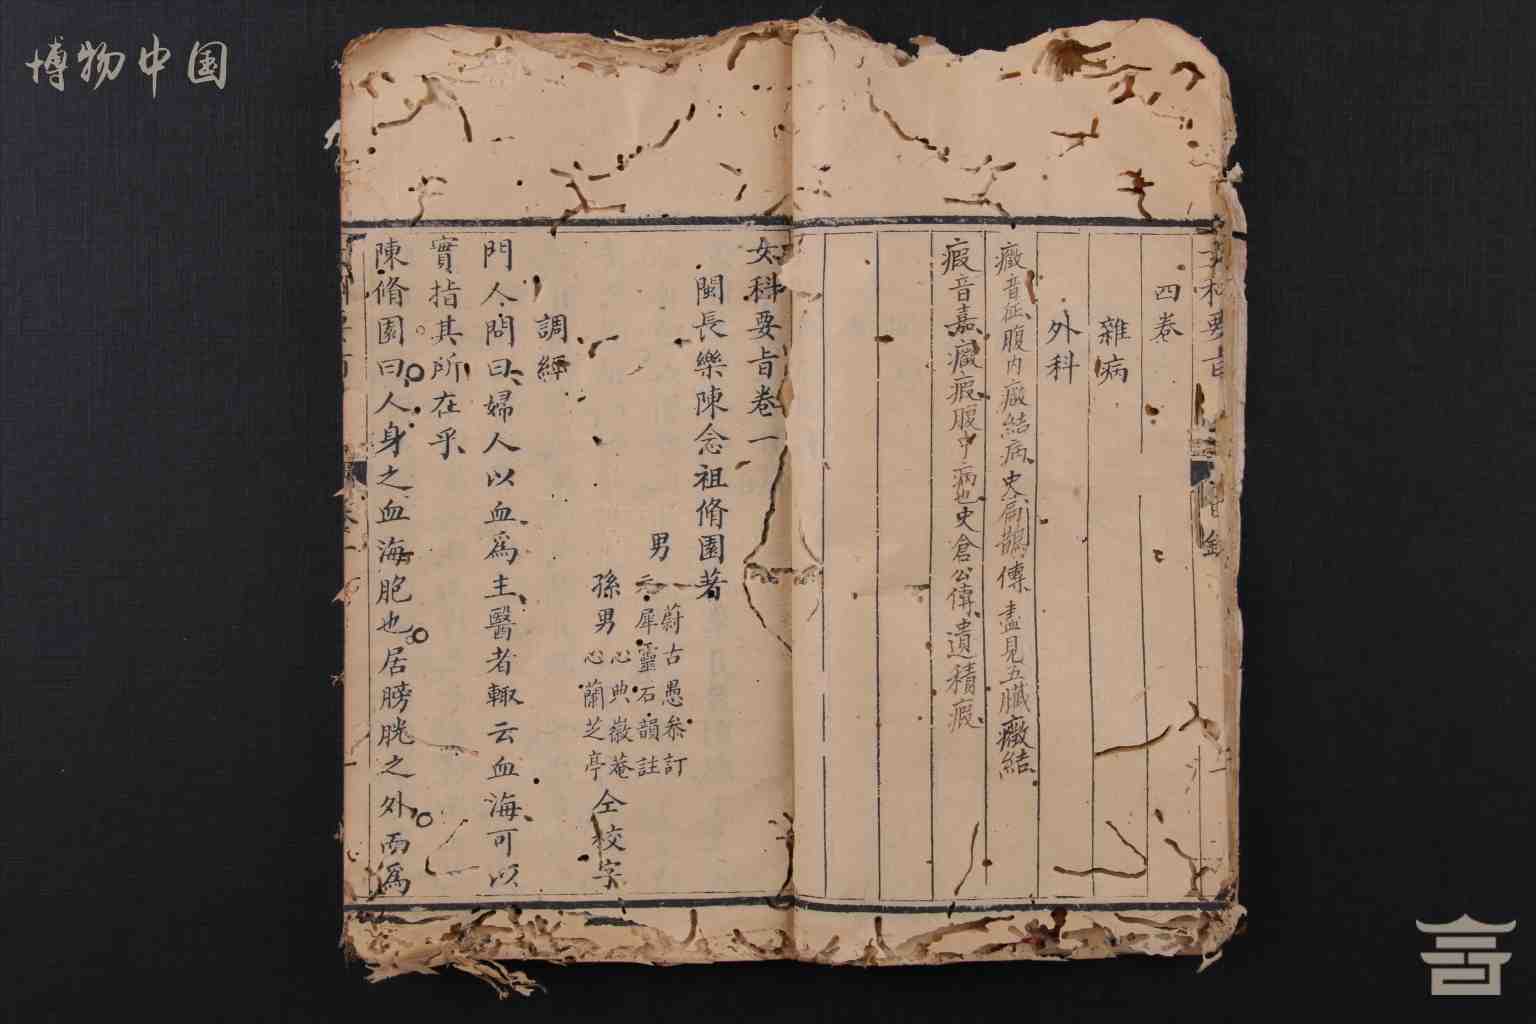 博物中国
女科要旨
目錄
四卷
雜病
外科
癥音征腹內癥結病史扁鵲傳盡見五臟癥結
瘕音嘉癥瘕腹中病也史倉公傳遺積瘕
女科要旨卷一
閩長樂陳念祖脩園著
男
蔚古愚叅訂
元犀靈石韻註
孫男
心典徽菴
心蘭芝亭
仝校字
調經
門人問曰婦人以血爲主醫者輙云血海可以
實指其所在乎
陳脩園曰人身之血海胞也居膀胱之外而爲